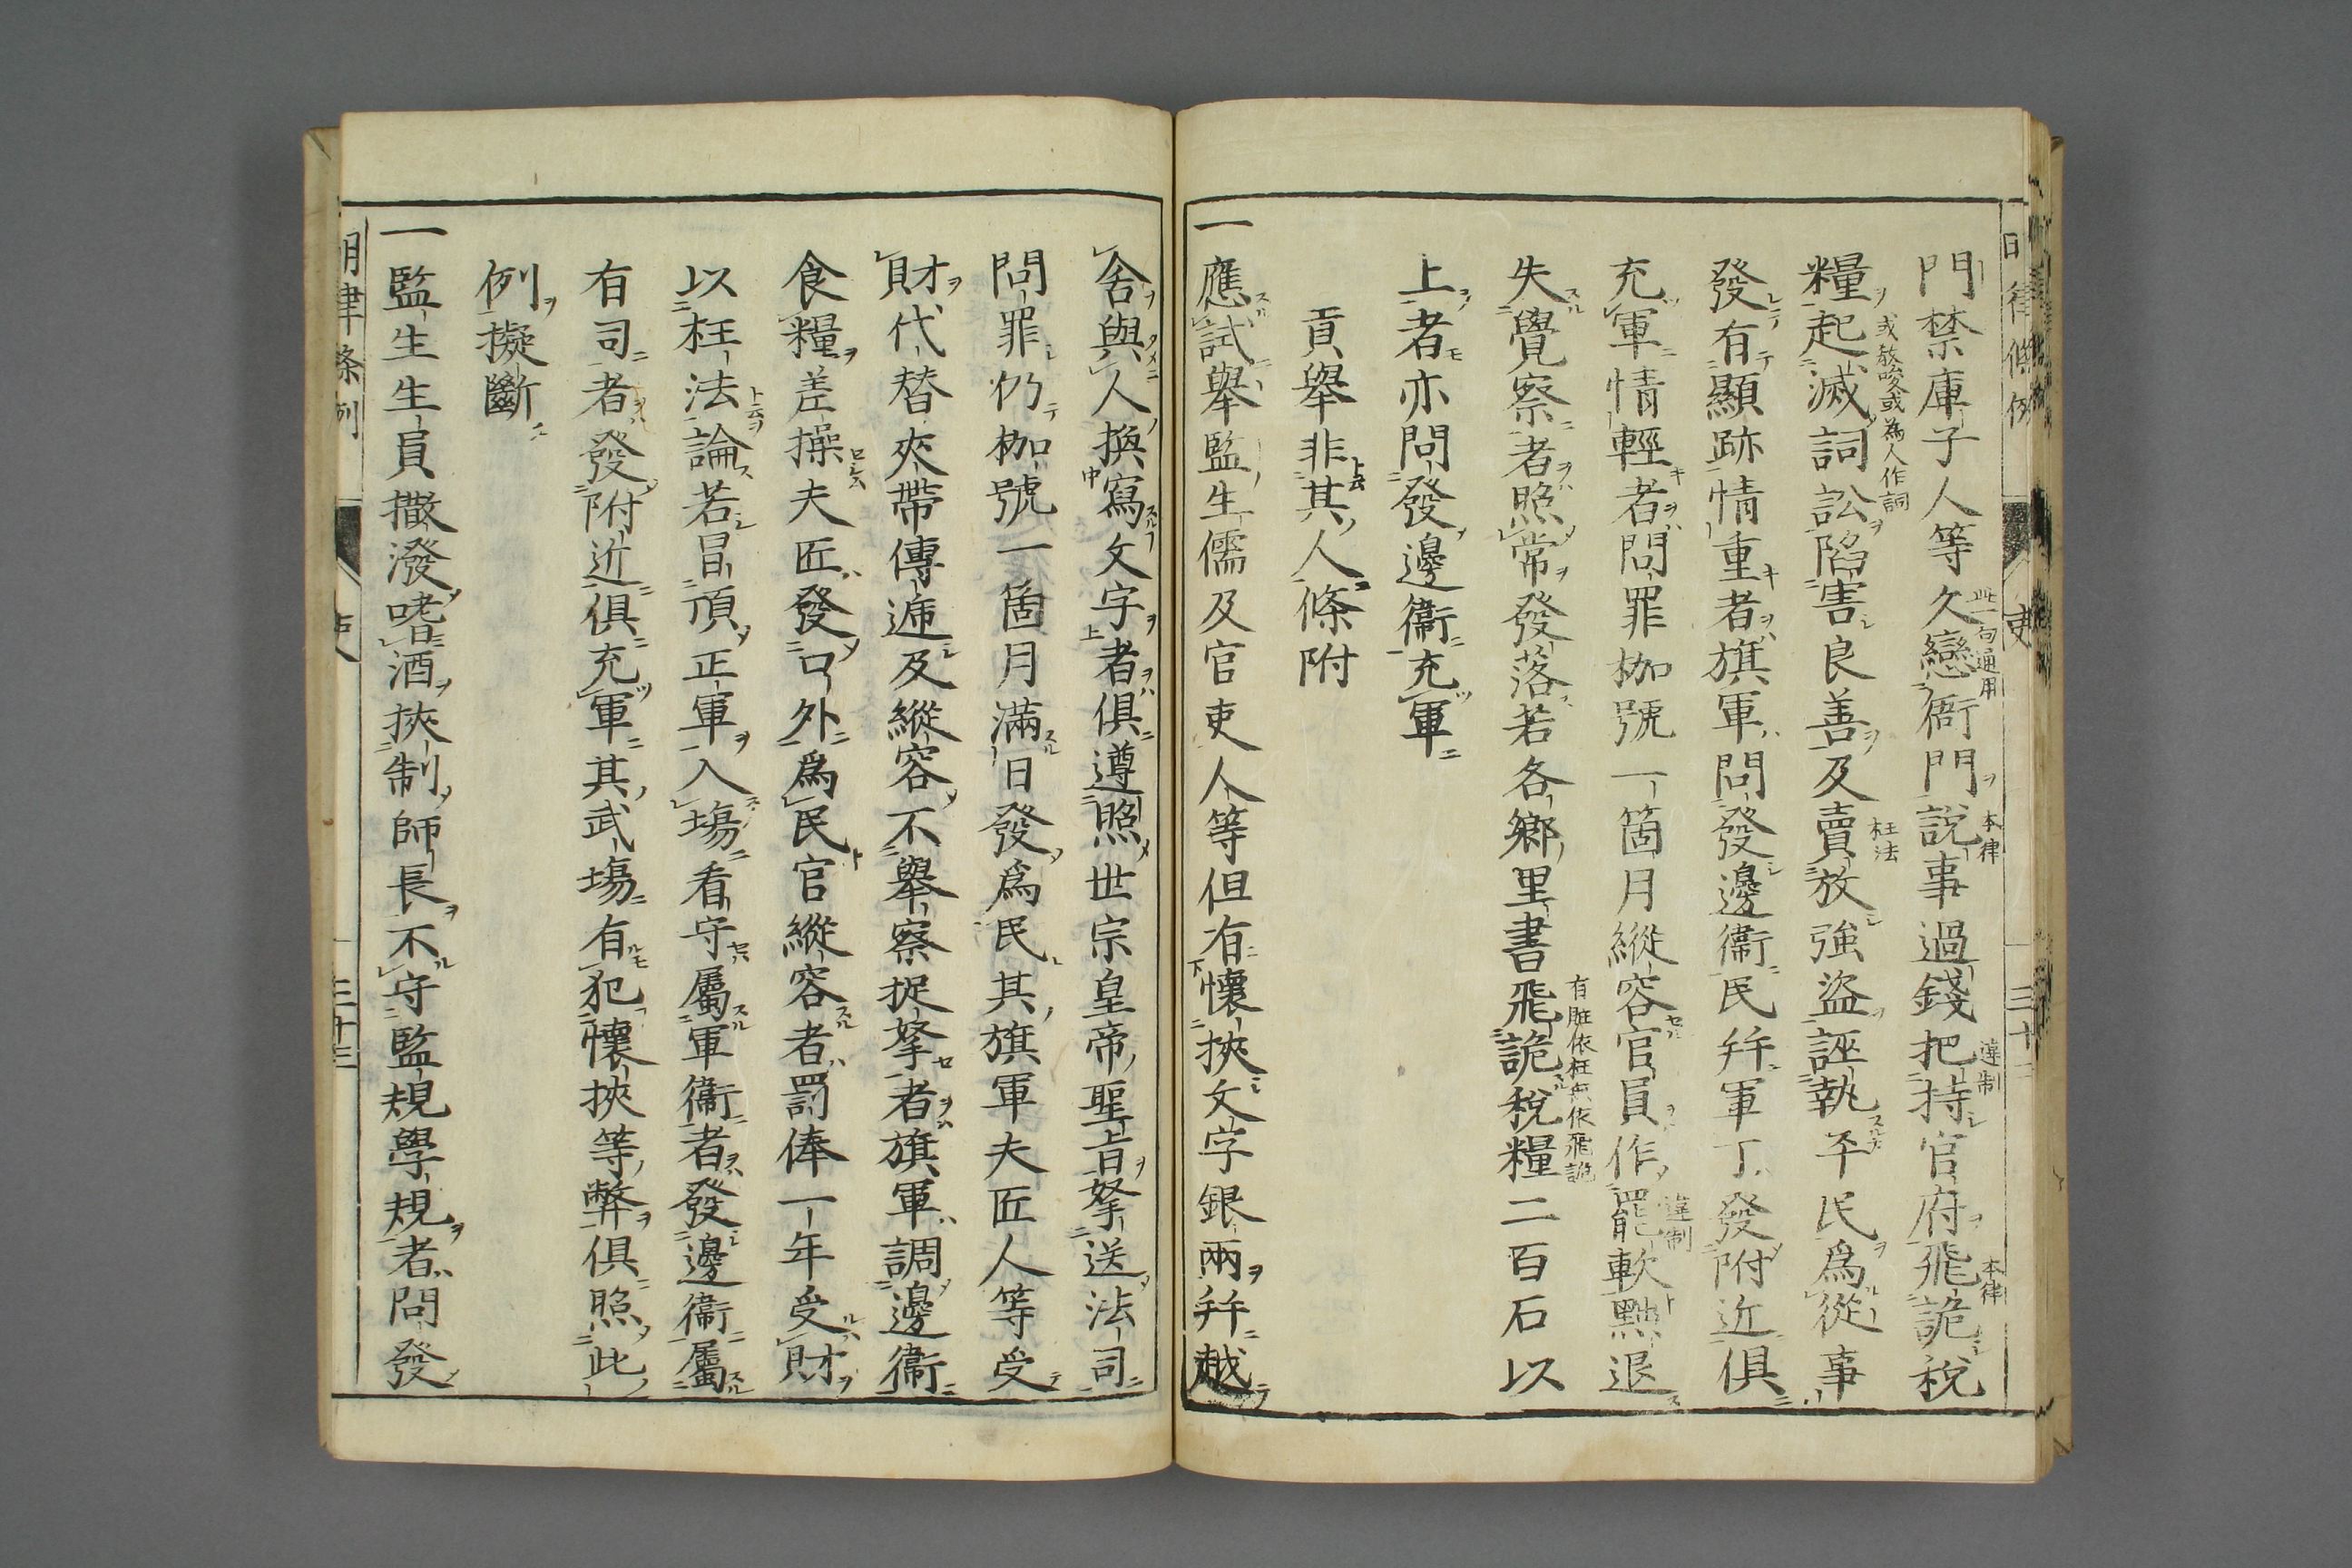 門禁庫子人等久戀衙門說事過錢把持官府飛詭稅
此一句通用
本律
違制
本律
糧起滅詞訟陷害良善及賣放強盜誣執平民爲從事
或教唆或為人作詞
枉法
發有顯跡情重者旗軍問發邊衞民幷軍丁發附近俱
充軍情輕者問罪枷號一箇月縱容官員作罷軟黜退
違制
失覺察者照常發落若各鄉里書飛詭稅糧二百石以
有贓依枉無依飛詭
上者亦問發邊衞充軍
貢舉非其人條附
一應試舉監生儒及官吏人等但有懷挾文字銀兩幷越
舍與人換寫文字者俱遵照世宗皇帝聖旨拏送法司
問罪仍枷號一箇月滿日發爲民其旗軍夫匠人等受
財代替夾帶傳遞及縱容不舉察捉拏者旗軍調邊衞
食糧差操夫匠發口外爲民官縱容者罰俸一年受財
以枉法論若冒頂正軍入場看守屬軍衞者發邊衞屬
有司者發附近俱充軍其武場有犯懷挾等弊俱照此
例擬斷
一監生生員撒潑嗜酒挾制師長不守監規學規者問發
明律條例
吏
三十三